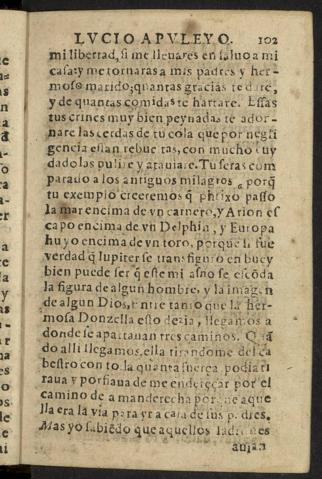 LVCIO APVLEYO. 102
mi libertad, si me lleuares en saluo a mi
casa: y me tornaras a mis padres y her-
moso marido; quantas gracias te daré,
y de quantas comidas te hartare. Essas
tus crines muy bien peynadas te ador-
nare las cerdas de tu cola que por negli
gencia estan rebueltas, con mucho cuy
dado las pulire y atauiare. Tu seras com
parado a los antiguos milagros, porq̃
tu exemplo creeremos q̃ phrixo passo
la mar encima de vn carnero, y Arion es
capo encima de vn Delphin, y Europa
huyo encima de vn toro, porque si fue
verdad q̃ Iupiter se transfiguro en buey
bien puede ser q̃ este mi asno se escõda
la figura de algun hombre, y la imagen
de algun Dios, entre tanto que la her-
mosa Donzella esto dezia, llegamos a
donde se apartauan tres caminos. Quã
do alli llegamos, ella tirandome del ca
bestro con toda quanta fuerça podia ti
raua y porfiaua de me endereçar por el
camino de a manderecha porque aque
lla era la via para yr a casa de sus padres.
Mas yo sabiẽdo que aquellos ladrones
auian